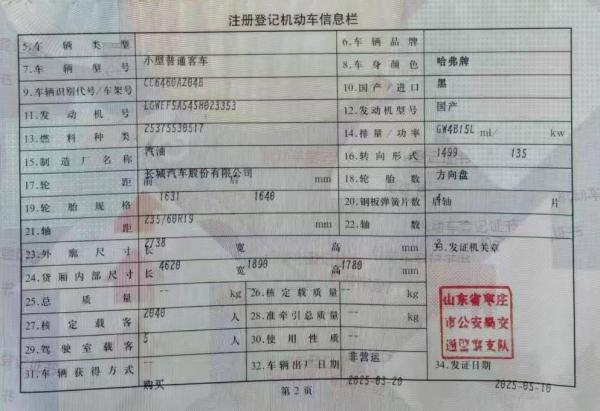 注册登记机动车信息栏
5.车辆类型 小型普通客车 6.车辆品牌 哈弗牌
7.车辆型号 CC6460AZ04B 8.车身颜色 黑
9.车辆识别代号/车架号 LGWEF5A54SH023353 10.国产/进口 国产
11.发动机号 ZS375530517 12.发动机型号 GW4B15L
13.燃料种类 汽油 14.排量/功率 1499 ml/ 135 kw
15.制造厂名称 长城汽车股份有限公司 16.转向形式 方向盘
17.轮距 前 1631 后 1640 mm 18.轮胎数 4
19.轮胎规格 235/60R19 20.钢板弹簧片数 后轴 片
21.轴距 2738 mm 22.轴数 2
23.外廓尺寸 长 4620 宽 1890 高 1780 mm 33.发证机关章
24.货厢内部尺寸 长 -- 宽 -- 高 -- mm
山东省枣庄
市公安局交
通警察支队
25.总质量 2040 kg 26.核定载质量 -- kg
27.核定载客 5 人 28.准牵引总质量 -- kg
29.驾驶室载客 -- 人 30.使用性质 非营运
31.车辆获得方式 购买 32.车辆出厂日期 2025-03-20 34.发证日期 2025-05-10
第2页